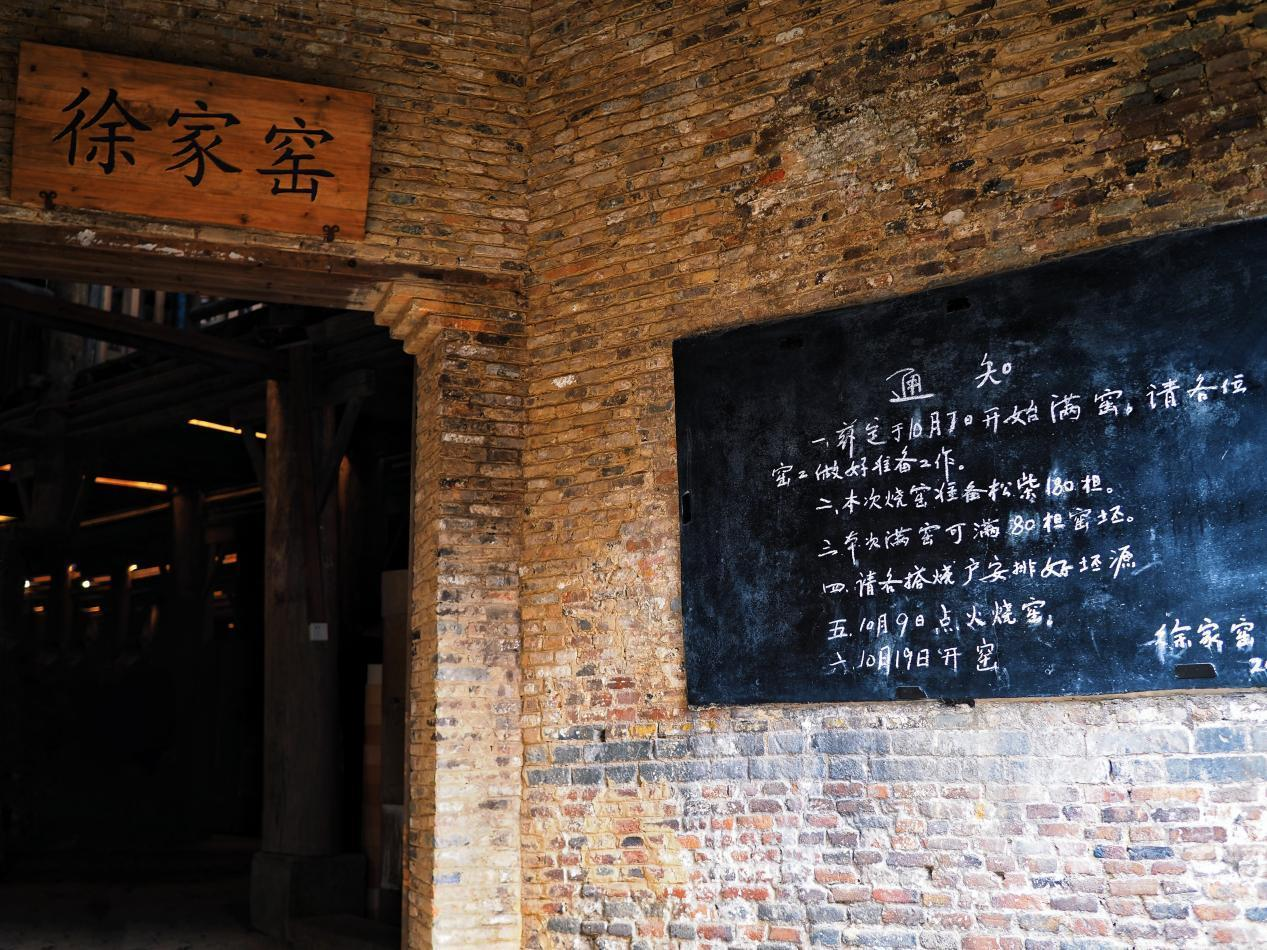 徐家窑
通知
一.兹定于10月7日开始满窑，请各位
窑工做好准备工作。
二.本次烧窑准备松柴180担。
三.本次满窑可满80担窑坯。
四.请各搭烧户安排好坯源
五.10月9日点火烧窑。
六.10月19日开窑
徐家窑
20